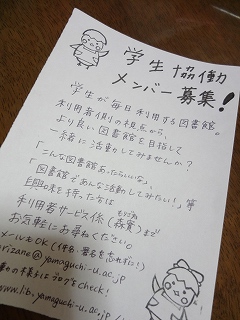 学生協働
メンバー募集!
学生が毎日利用する図書館。
利用者側の視点から、
より良い図書館を目指して
一緒に活動してみませんか?
「こんな図書館あったらいいな」
「図書館であんな活動してみたい!」等
興味を持った方は
もりざね
利用者サービス係(森實)まで
お気軽にお尋ねください。
メールもOK(件名・署名を忘れずに!)
arizane@yamaguchi-u.ac.jp
動の様子はブログをcheck!
www.lib.yamaguchi-u.ac.jp/